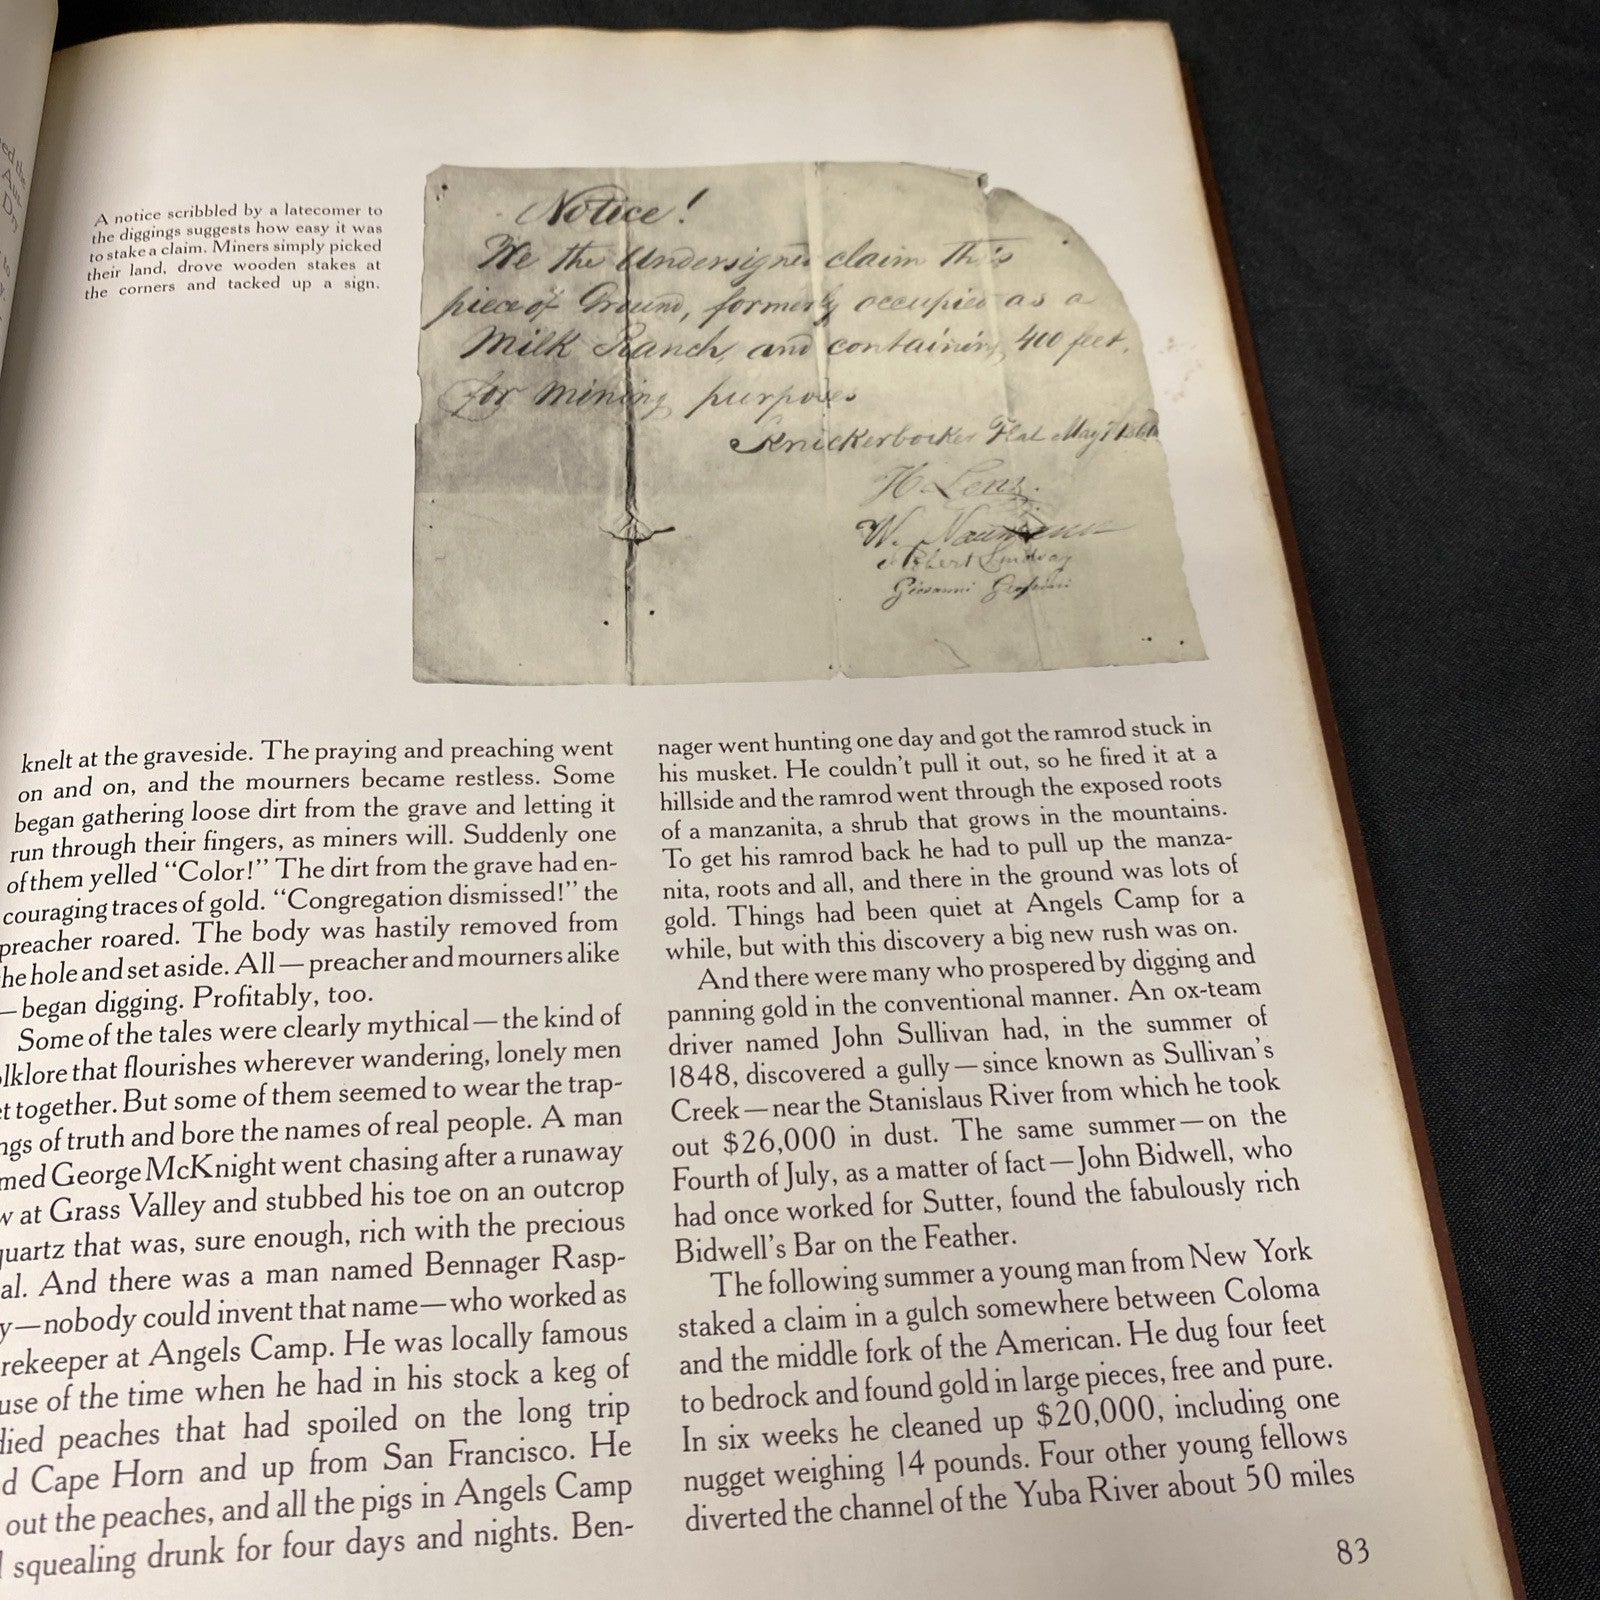 A notice scribbled by a latecomer to
the diggings suggests how easy it was
to stake a claim. Miners simply picked
their land, drove wooden stakes at
the corners and tacked up a sign.
Notice!
We the Undersigned claim This
piece of Ground, formerly occupied as a
Milk Ranch, and containing 400 feet,
for mining purposes
Knickerbocker Flat May
H. Lenz.
W.
Robert Lindsay
Giovanni
knelt at the graveside. The praying and preaching went
on and on, and the mourners became restless. Some
began gathering loose dirt from the grave and letting it
run through their fingers, as miners will. Suddenly one
of them yelled “Color!” The dirt from the grave had en-
couraging traces of gold. “Congregation dismissed!” the
preacher roared. The body was hastily removed from
he hole and set aside. All—preacher and mourners alike
—began digging. Profitably, too.
Some of the tales were clearly mythical—the kind of
lklore that flourishes wherever wandering, lonely men
t together. But some of them seemed to wear the trap-
ngs of truth and bore the names of real people. A man
med George McKnight went chasing after a runaway
w at Grass Valley and stubbed his toe on an outcrop
quartz that was, sure enough, rich with the precious
al. And there was a man named Bennager Rasp-
y—nobody could invent that name—who worked as
rekeeper at Angels Camp. He was locally famous
use of the time when he had in his stock a keg of
died peaches that had spoiled on the long trip
d Cape Horn and up from San Francisco. He
out the peaches, and all the pigs in Angels Camp
squealing drunk for four days and nights. Ben-
nager went hunting one day and got the ramrod stuck in
his musket. He couldn’t pull it out, so he fired it at a
hillside and the ramrod went through the exposed roots
of a manzanita, a shrub that grows in the mountains.
To get his ramrod back he had to pull up the manza-
nita, roots and all, and there in the ground was lots of
gold. Things had been quiet at Angels Camp for a
while, but with this discovery a big new rush was on.
And there were many who prospered by digging and
panning gold in the conventional manner. An ox-team
driver named John Sullivan had, in the summer of
1848, discovered a gully—since known as Sullivan’s
Creek—near the Stanislaus River from which he took
out $26,000 in dust. The same summer—on the
Fourth of July, as a matter of fact—John Bidwell, who
had once worked for Sutter, found the fabulously rich
Bidwell’s Bar on the Feather.
The following summer a young man from New York
staked a claim in a gulch somewhere between Coloma
and the middle fork of the American. He dug four feet
to bedrock and found gold in large pieces, free and pure.
In six weeks he cleaned up $20,000, including one
nugget weighing 14 pounds. Four other young fellows
diverted the channel of the Yuba River about 50 miles
83